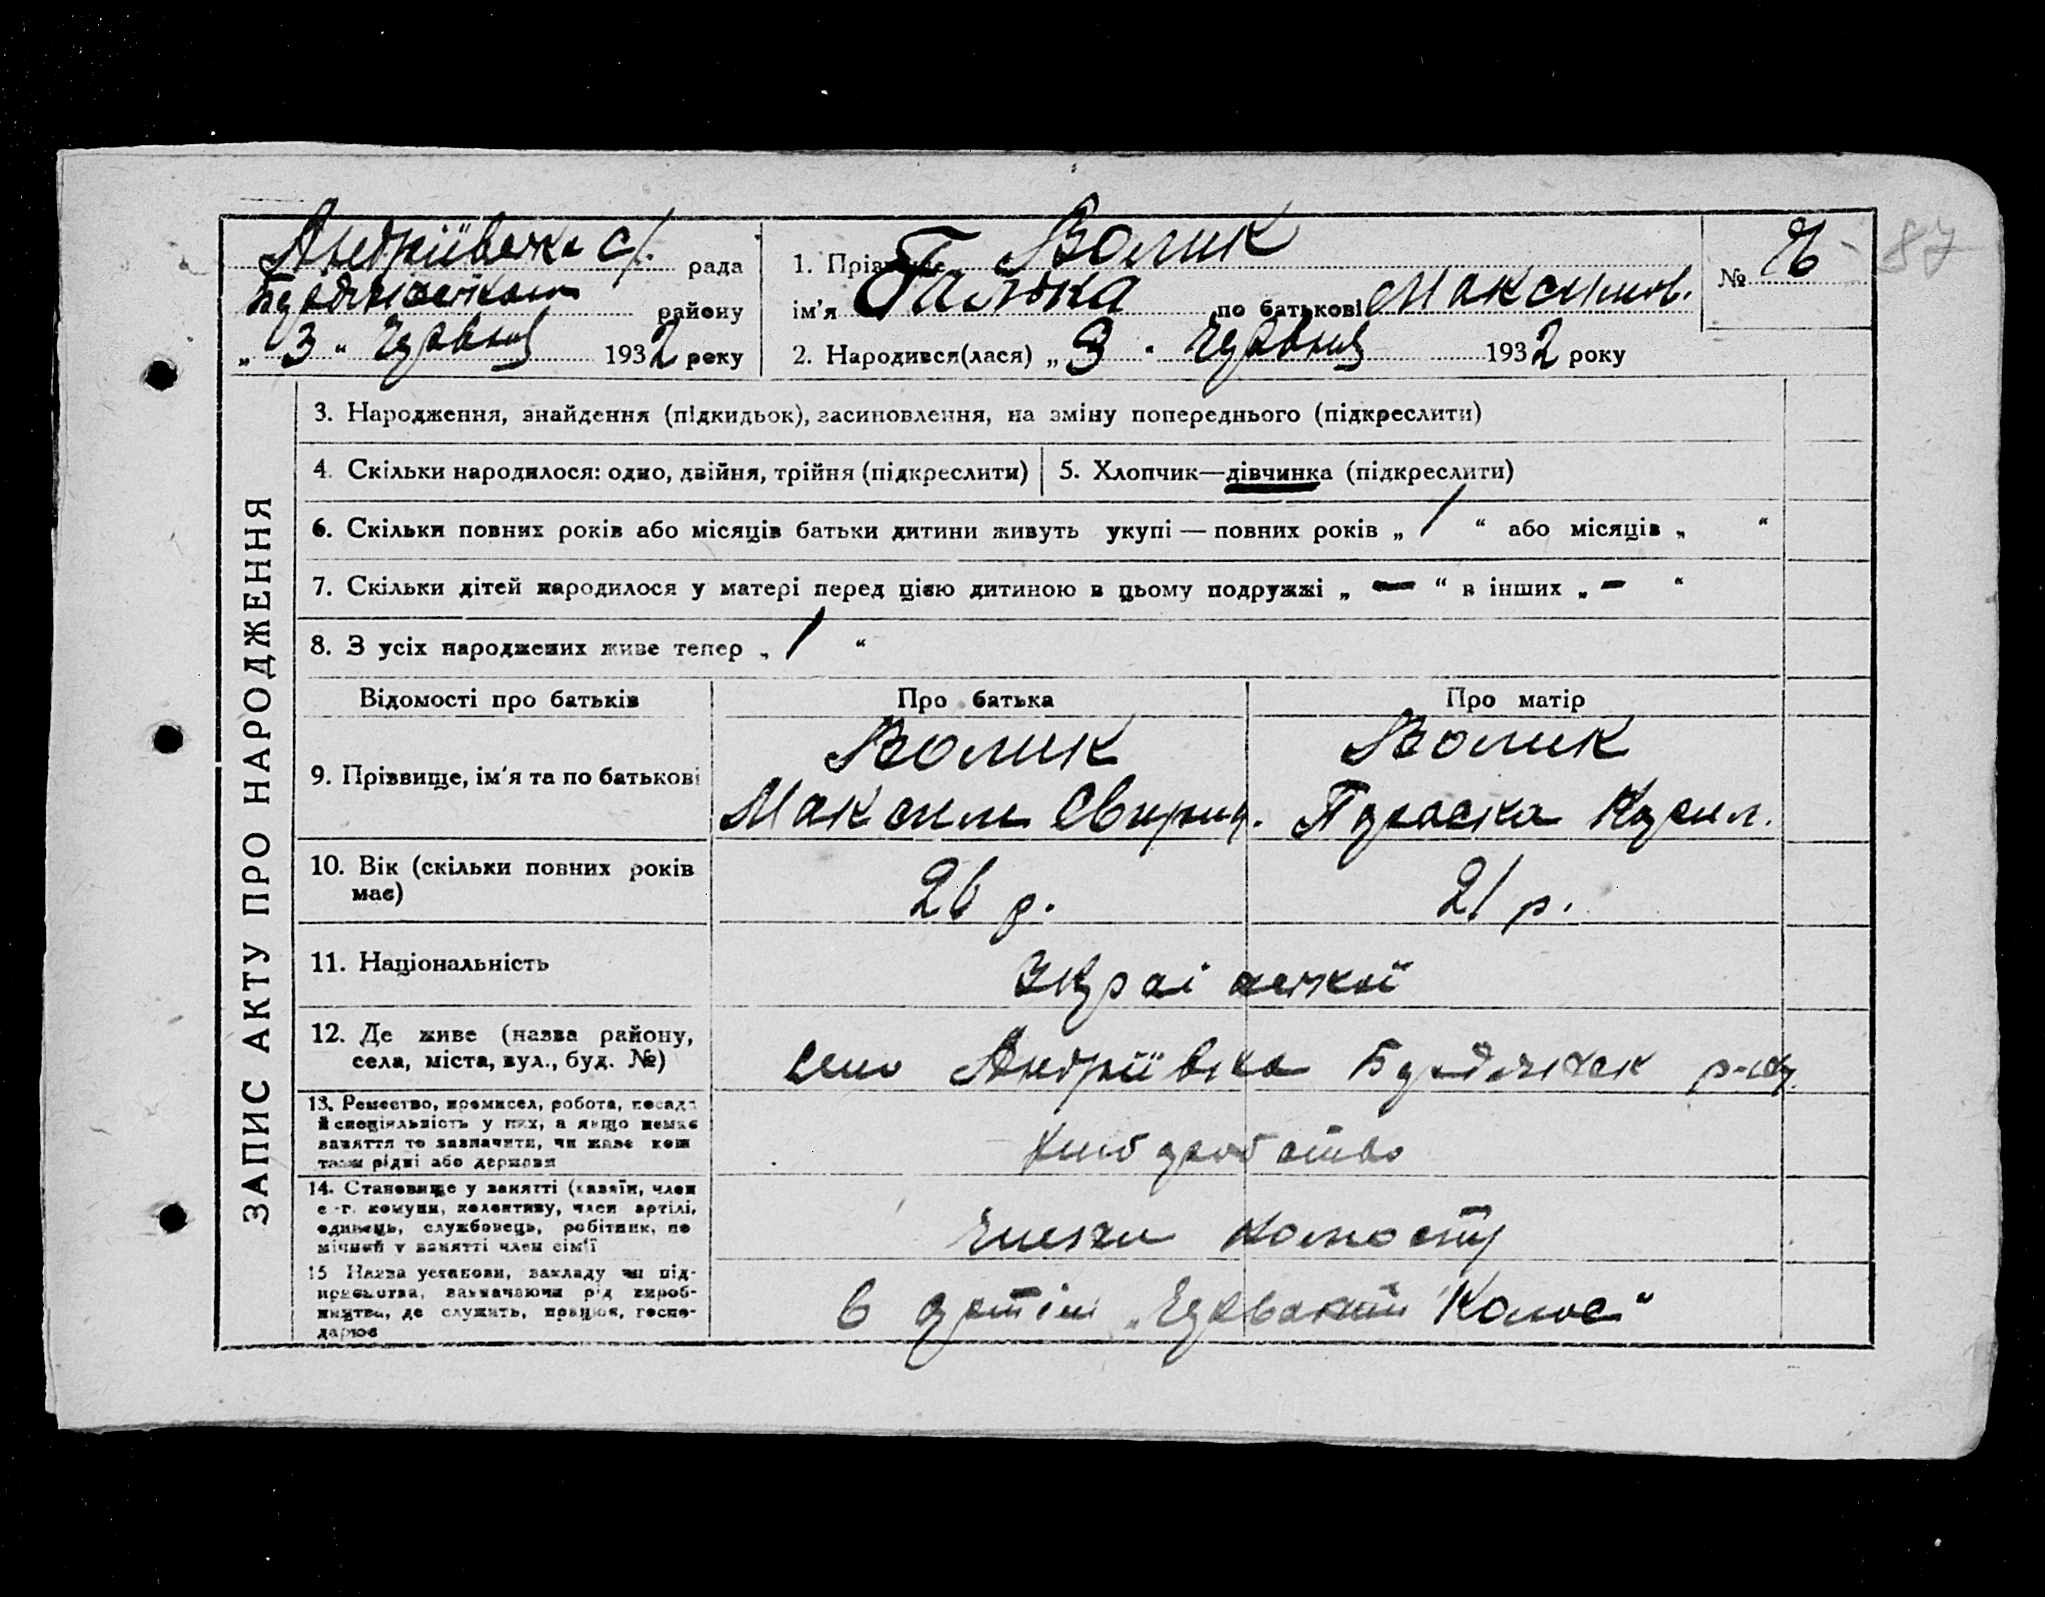 Андріївська с/. рада
Бердянського району
„ 3 “ червня 1932 року
1. Прізвище Волик
ім'я Галька по батькові Максимов.
№ 76 87
2. Народився(лася) „ 3 “ червня 1932 року
ЗАПИС АКТУ ПРО НАРОДЖЕННЯ
3. Народження, знайдення (підкидьок), засиновлення, на зміну попереднього (підкреслити)
4. Скільки народилося: одно, двійня, трійня (підкреслити) 5. Хлопчик—дівчинка (підкреслити)
6. Скільки повних років або місяців батьки дитини живуть укупі — повних років „ 1 “ або місяців „ “
7. Скільки дітей народилося у матері перед цією дитиною в цьому подружжі „ — “ в інших „ – “
8. З усіх народжених живе тепер „ 1 “
Відомості про батьків Про батька Про матір
9. Прізвище, ім'я та по батькові
Волик Волик
Максим Свирид. Параска Кирил.
10. Вік (скільки повних років
має)
26 р. 21 р.
11. Національність
Українській
12. Де живе (назва району,
села, міста, вул., буд. №)
село Андріївка Бердянськ р-ну.
13. Ремество, промисел, робота, посада
й спеціяльність у них, а якщо немає
заняття то зазначити, чи живе кош
тами рідні або держави
хліборобство
14. Становище у занятті (хазяїн, член
с.-г. комуни, колективу, член артілі,
одинець, службовець, робітник, по
мічний у занятті член сім'ї
члени колгоспу
15 Назва установи, закладу чи під-
приємства, зазначаючи рід вироб-
ництва, де служить, працює, госпо-
дарює
в артілі „Червоний Колос“